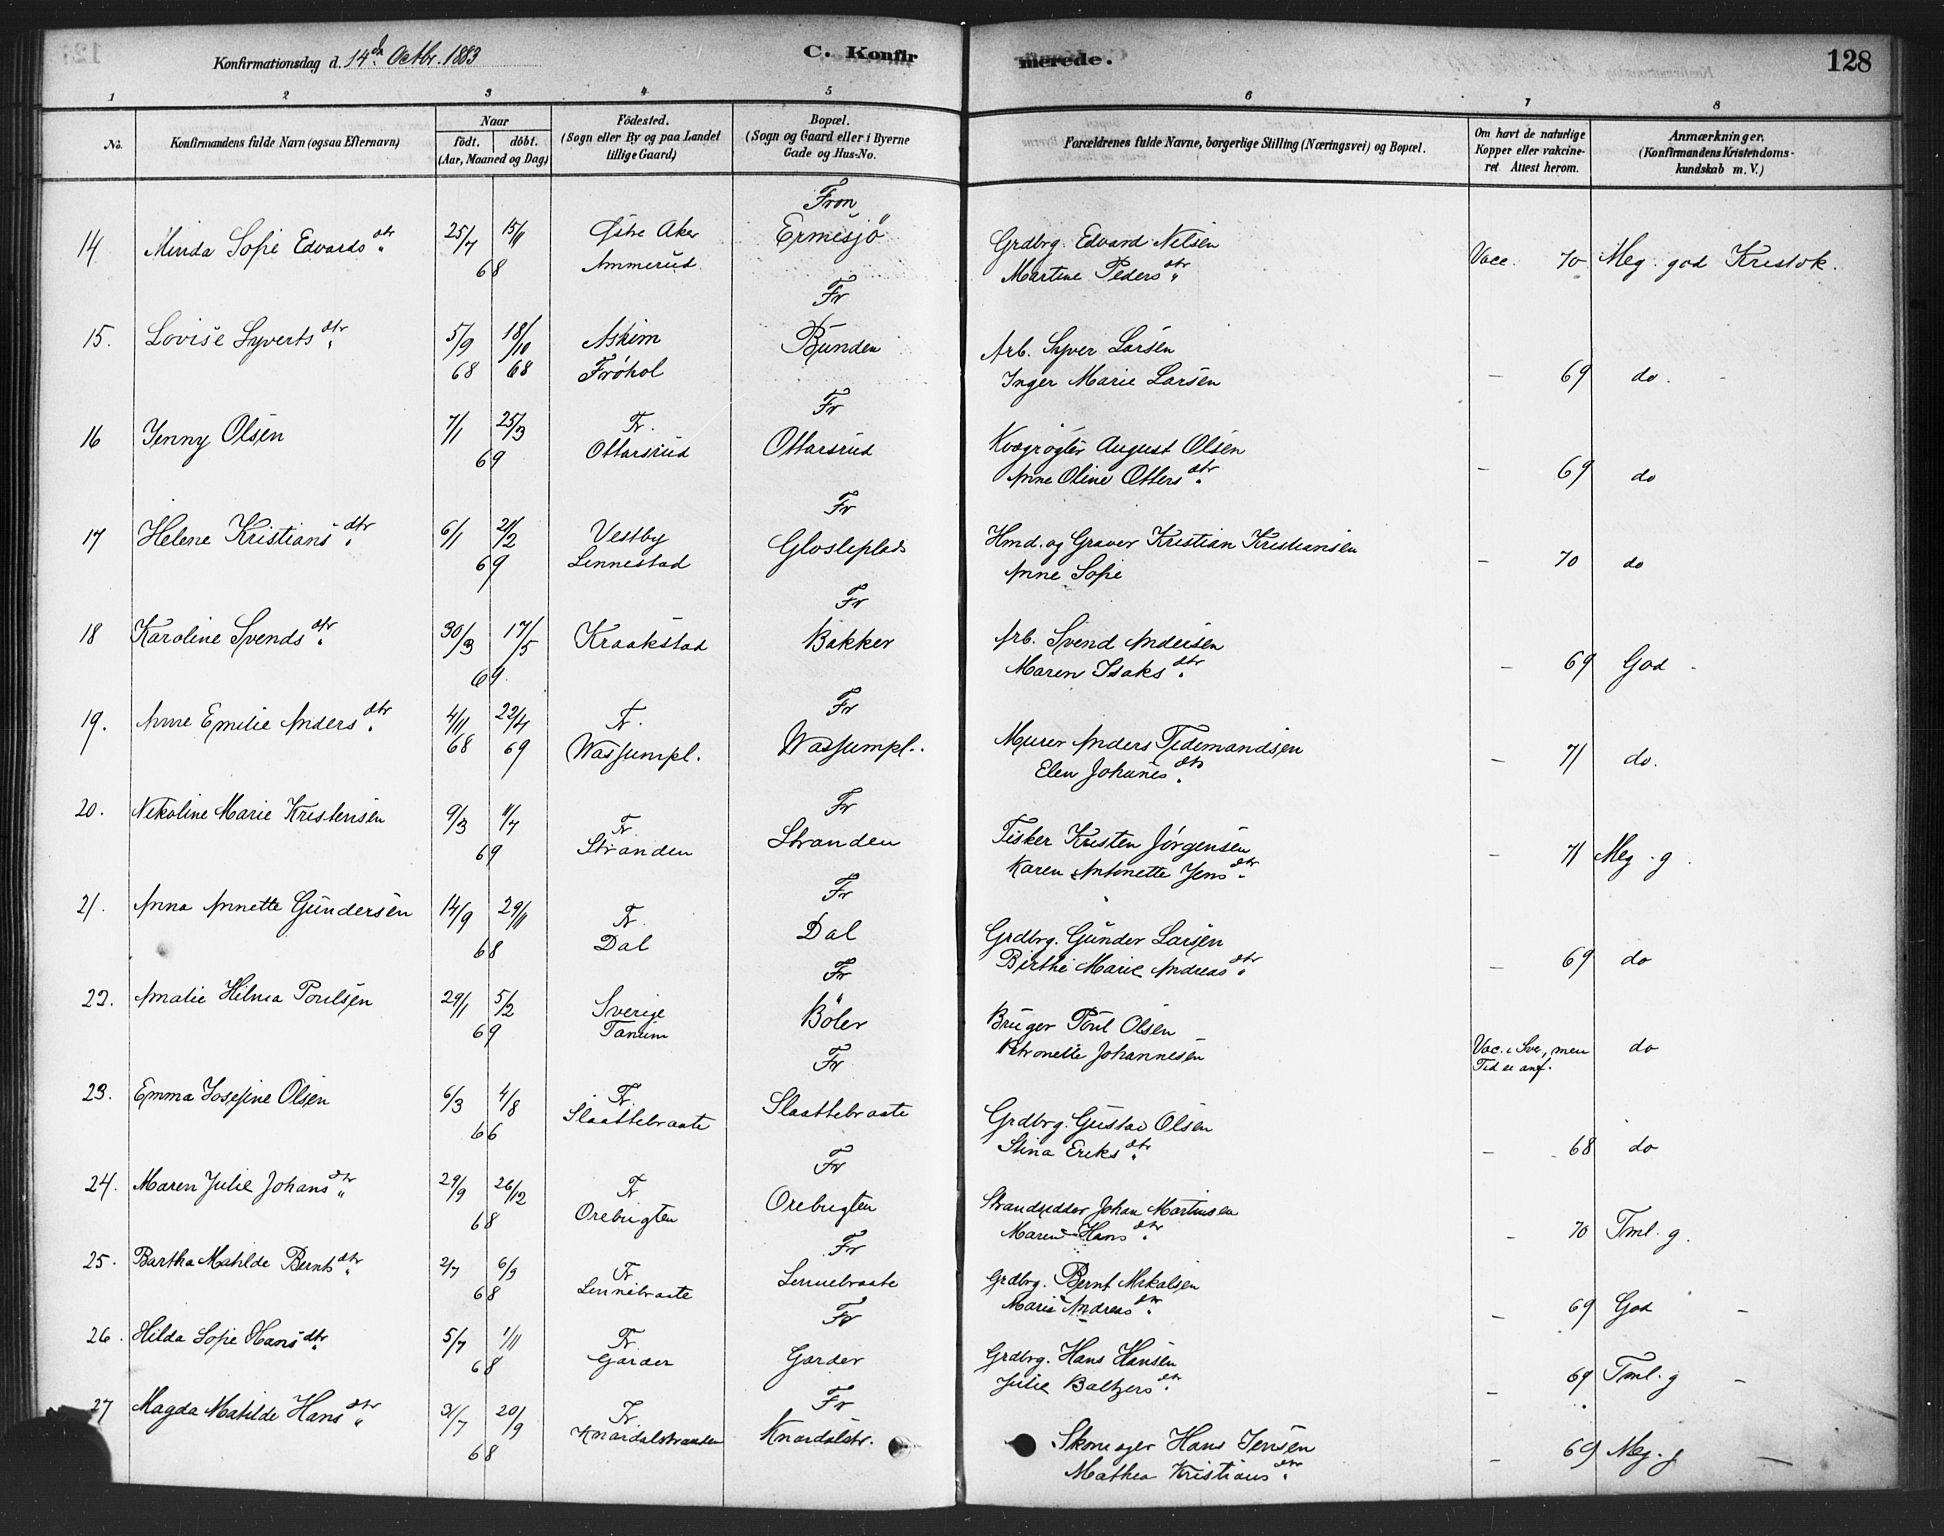 Konfirmationsdag d. 14de Octbr. 1883
C. Konfirmerede.
128
1 2 3 4 5 6 7 8
No.
Konfirmandens fulde Navn (ogsaa Efternavn)
Naar
født. døbt.
(Aar, Maaned og Dag)
Fødested.
(Sogn eller By og paa Landet
tillige Gaard)
Bopæl.
(Sogn og Gaard eller i Byerne
Gade og Hus-No.
Forældrenes fulde Navne, borgerlige Stilling (Næringsvei) og Bopæl.
Om havt de naturlige
Kopper eller vakcine-
ret Attest herom.
Anmærkninger.
(Konfirmandens Kristendoms-
kundskab m. V.)
Fron
14 Minda Sofie Edvards dtr 25/7 15/11 Østre Aker Ermesjø Grdbrg. Edvard Nilsen Vacc. 70 Meg. god Kristdk.
68 Ammerud Martine Peders dtr
Fr
15. Lovise Syverts dtr 5/9 18/10 Askim Bunden Arb. Syver Larsen
68 68 Frøhol Inger Marie Larsen - 69 do. -
Fr
16 Jenny Olsen 7/1 25/3 Fr. Ottarsrud Kvægrøgter August Olsen
69 Ottarsrud Anne Oline Otters dtr - 69 do
Fr
17 Helene Kristians dtr 6/1 21/2 Vestby Glosleplads Hmd. og Graver Kristian Kristiansen
69 Linnestad Anne Sofie - 70 do
Fr
18 Karoline Svends dtr 30/3 17/5 Kraakstad Bakker Arb. Svend Andersen
69. Maren Isaks dtr - 69 God -
Fr
19. Anne Emilie Anders dtr 4/11 22/4 Fr. Wassumpl. Murer Anders Tidemandsen
68 69 Wassumpl. Elen Johanes dtr - 71 do.
Fr
20. Nikoline Marie Kristensen 9/3 11/7 Fr. Stranden Fisker Kristen Jørgensen
69 Stranden Karen Antonette Jens dtr - 71 Meg. g.
Fr
21. Anna Annette Gundersen 14/9 29/11 Fr. Dal Grdbrg. Gunder Larsen
68 Dal Birthe Marie Andreas dtr - 69 do
Fr
22. Amalie Hilma Poulsen 29/1 5/2 Sverige Bøler Bruger Poul Olsen
69 Tanum Petronelle Johannesen Vac. i Sve, men do
Tid ei anf.
Fr
23. Emma Josefine Olsen 6/3 4/8 Fr. Slaattebraate Grdbrg. Gustav Olsen
66 Slaattebraate Stina Eriks dtr - 68 do
Fr
24. Maren Julie Johans dtr 29/9 26/12 Fr Orebugten Strandsidder Johan Martinsen
68 Orebugten Maren Hans dtr - 70 Tml. g.
Fr
25. Bartha Matilde Bernts dtr 2/7 6/9 Fr Linnebraate Grdbrg. Bernt Mikalsen
68 Linnebraate Marie Andreas dtr - 69 God -
Fr
26. Hilda Sofie Hans dtr 5/7 1/11 Fr. Garder Grdbrg. Hans Hansen
68 Garder Julie Baltzers dtr - 69 Tml. g -
Fr
27 Magda Matilde Hans dtr 31/7 20/9 Fr Knardalstr. Skoneager Hans Jensen
68 Knardalstranden Mathea Kristians dtr - 69 Meg. g -